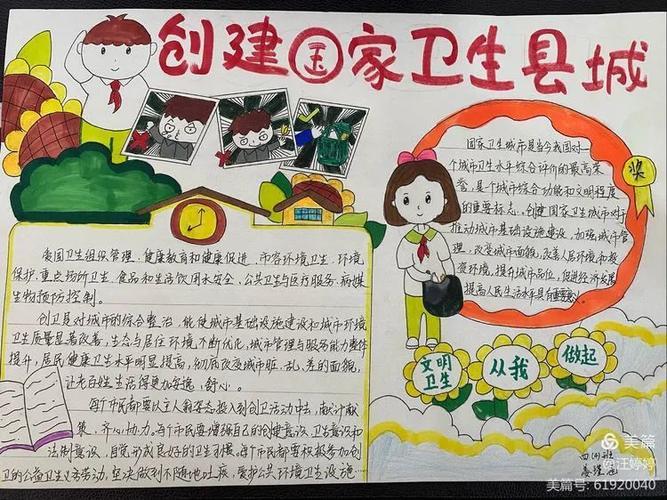 创建国家卫生县城
国家卫生城市是当今我国对一
个城市卫生水平综合评价的最高荣
誉,是个城市综合功能和文明程度
的重要标志。创建国家卫生城市对于
推动城市基础设施建设,加强城市管
理,改变城市面貌,改善人居环境和投
资环境,提升城市品位,促进经济发展
提高人民生活水平具有重要意义。
奖
爱国卫生组织管理、健康教育和健康促进、市容环境卫生、环境
保护、重点场所卫生、食品和生活饮用水安全、公共卫生与医疗服务、病媒
生物预防控制。
创卫是对城市的综合整治,能使城市基础设施建设和城市环境
卫生质量显著改善,生态与居住环境不断优化,城市管理与服务能力整体
提升,居民健康卫生水平明显提高,彻底改变城市脏、乱、差的面貌,
让老百姓生活得更加安逸、舒心。
每个市民都要以主人翁姿态投入到创卫活动中去,献计献
策、齐心协力。每个市民要增强自己的创建意识、卫生意识和
法制意识,自觉形成良好的卫生习惯。每个市民都要积极参加创
卫的公益卫生义务劳动,坚决做到不随地吐痰,爱护公共环境卫生设施
文明
卫生
从我
做起
四(4)班
美篇
@汪婷婷
美篇号: 61920040